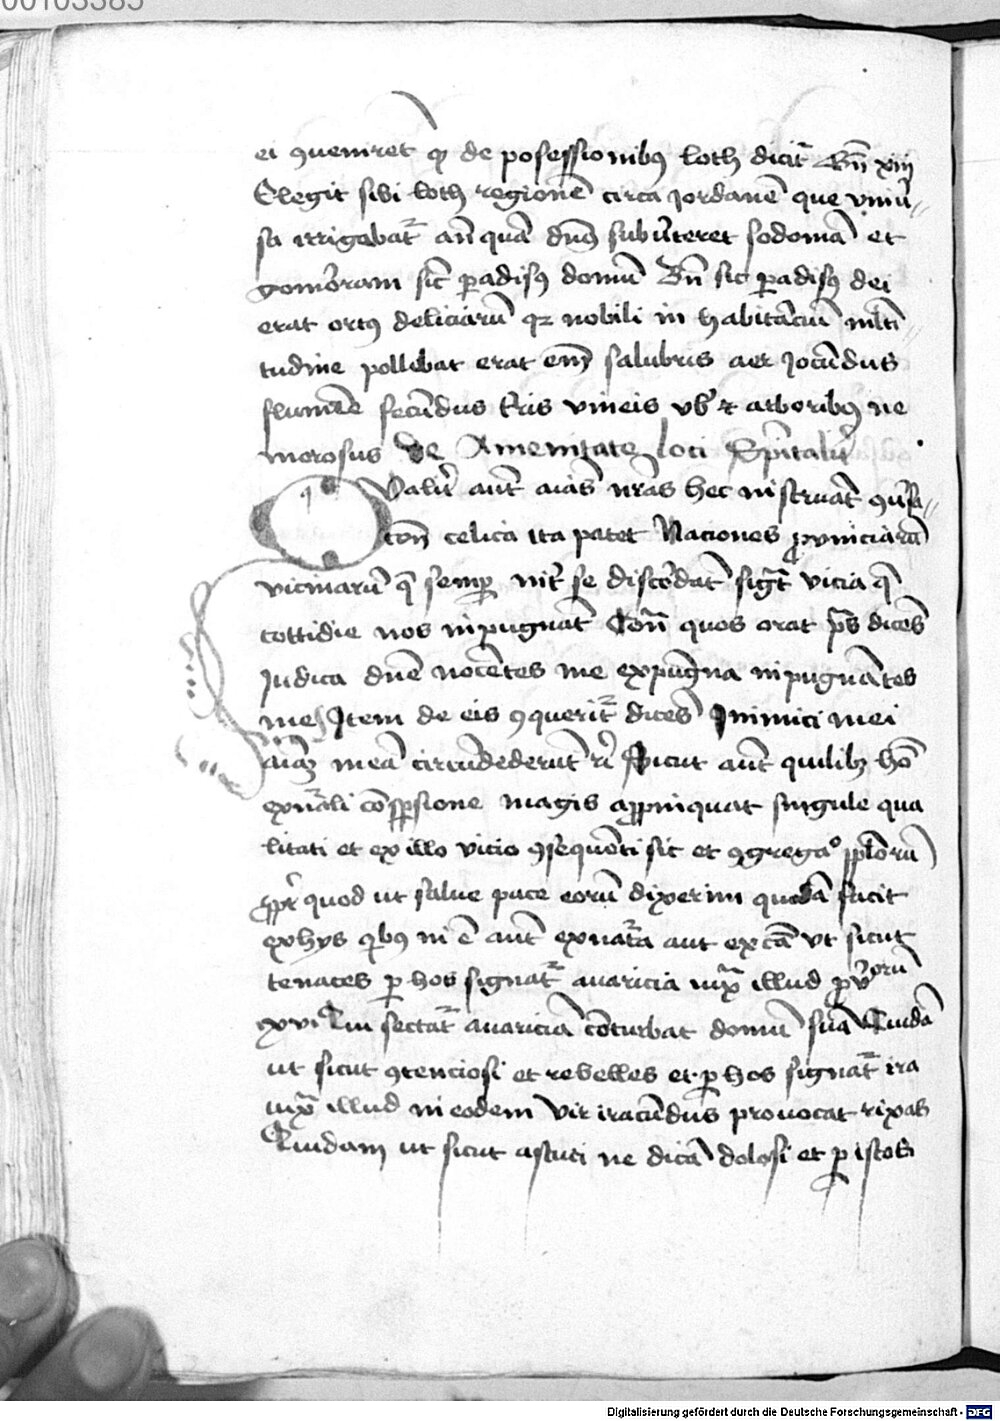 00103385
ei ꝯueniret qͥ de posessionibꝯ loth dicit᷑ Gn̄ xiij
Elegit sibi loth regionē circa jordanē que vniu̕
sa irrigabat᷑ an̄ quā dn̄s subu̕teret sodomā et
gomoram sic̄ ꝑadisꝯ domī Gn̄ sic ꝑadisꝯ dei
erat ortꝯ deliciarū qꝫ nobili in habitācīū ml̄ti
tudine pollebat erat em̄ salubris aer jocūdus
flumīe fecūdus Eris vineis vb̕ꝫ arboribꝯ ne
morosus de Amenitate loci Spi̅talit̕
Qvalit̕ aut̄ aīas nr̄as hec nistruāt ꝯu̕sa
cōn̄ celica ita patet Naciones ꝓvinciarū
vicinarū q̄ semꝑ int̕ se discordāt sigt̄ vicia q̄
cottidie nos inpugnāt Con̄ quos orat ps̄ dicēs
Judica dn̄e nocētes me expugna inpugnātes
me Item de eis ꝯquerit᷑ dicēs Inimici mei
aīaꝫ meā circūdederūt rͥ Sicut aut̄ quilibꝫ hō
ex nāli cōspsione magis aꝓpinquat singule qua
litati et ex illo vicio ꝯsequēti sit et ꝯgregaͦ ppl̄orū
ꝓpt̕ quod ut salue pace eorū dixerim quedā facit
ex hys qͥbꝯ in ē aut̄ ex nat᷑a aut ex cā vt sicut
tenaces ꝑ hos signat᷑ auaricia iux̄ illud ꝓu̕orū
xvi Qui sectat᷑ auariciā cōturbat domū suā Quidā
ut sicut ꝯtenciosi et rebelles et ꝑ hos signat᷑ ira
iux̄ illud in eodem Vir iracūdus prouocat rixas
Quidam ut sicut astuti ne dicā dolosi et ꝑ istos
Digitalisierung gefördert durch die Deutsche Forschungsgemeinschaft - DFG